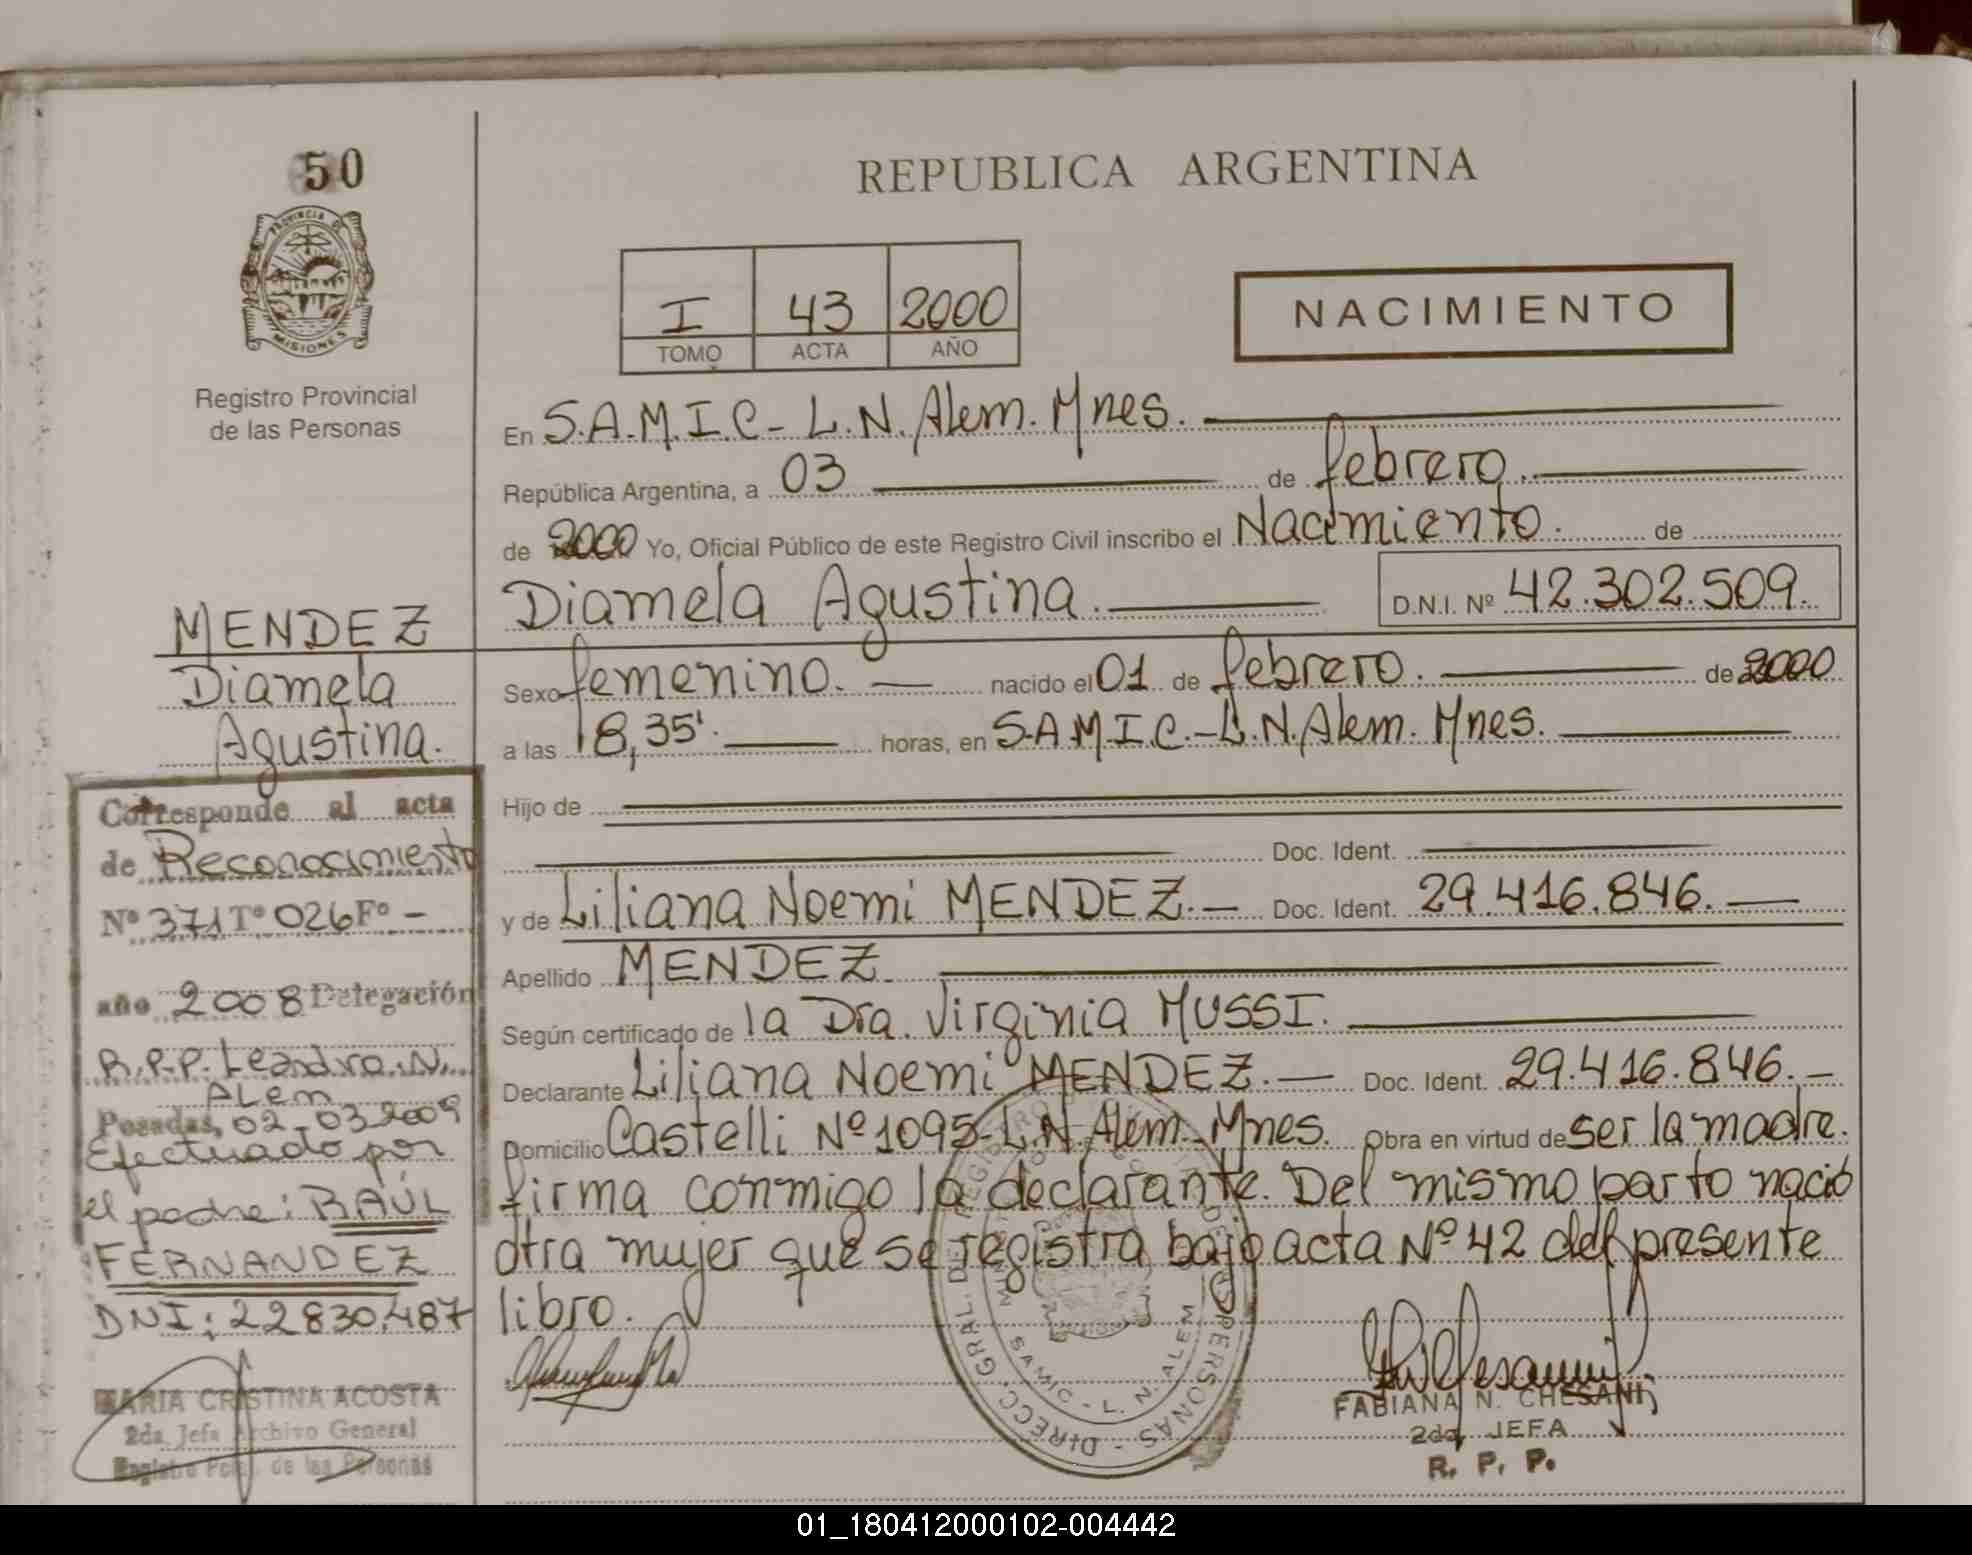 50
PROVINCIA DE
MISIONES
Registro Provincial
de las Personas
MENDEZ
Diamela
Agustina.
Corresponde al acta
de Reconocimiento
Nº 371 Tº 026 Fº -
año 2008 Delegación
R.P.P. Leandro N.
Alem
Posadas, 02-03-2009
Efectuado por
el padre: RAÚL
FERNANDEZ
DNI: 22830.487
MARIA CRISTINA ACOSTA
2da. Jefa Archivo General
Registro Pcial. de las Personas
REPUBLICA ARGENTINA
I 43 2000
TOMO ACTA AÑO
NACIMIENTO
En S.A.M.I.C- L.N. Alem. Mnes.
República Argentina, a 03 de febrero.
de 2000 Yo, Oficial Público de este Registro Civil inscribo el Nacimiento. de
Diamela Agustina. D.N.I. Nº 42.302.509.
Sexo femenino. nacido el 01 de febrero. de 2000
a las 18,35'. horas, en S.A.M.I.C.-L.N. Alem. Mnes.
Hijo de
Doc. Ident.
y de Liliana Noemi MENDEZ. Doc. Ident. 29.416.846.
Apellido MENDEZ.
Según certificado de la Dra. Virginia MUSSI.
Declarante Liliana Noemi MENDEZ. Doc. Ident. 29.416.846.
Domicilio Castelli Nº 1095-L.N. Alem. Mnes. Obra en virtud de ser la madre.
firma conmigo la declarante. Del mismo parto nació
otra mujer que se registra bajo acta Nº 42 del presente
libro.
DIRECC. GRAL. DE REGISTRO PERSONAS
SAMIC - L. N. ALEM
FABIANA N. CHESANI
2da. JEFA
R. P. P.
01_180412000102-004442